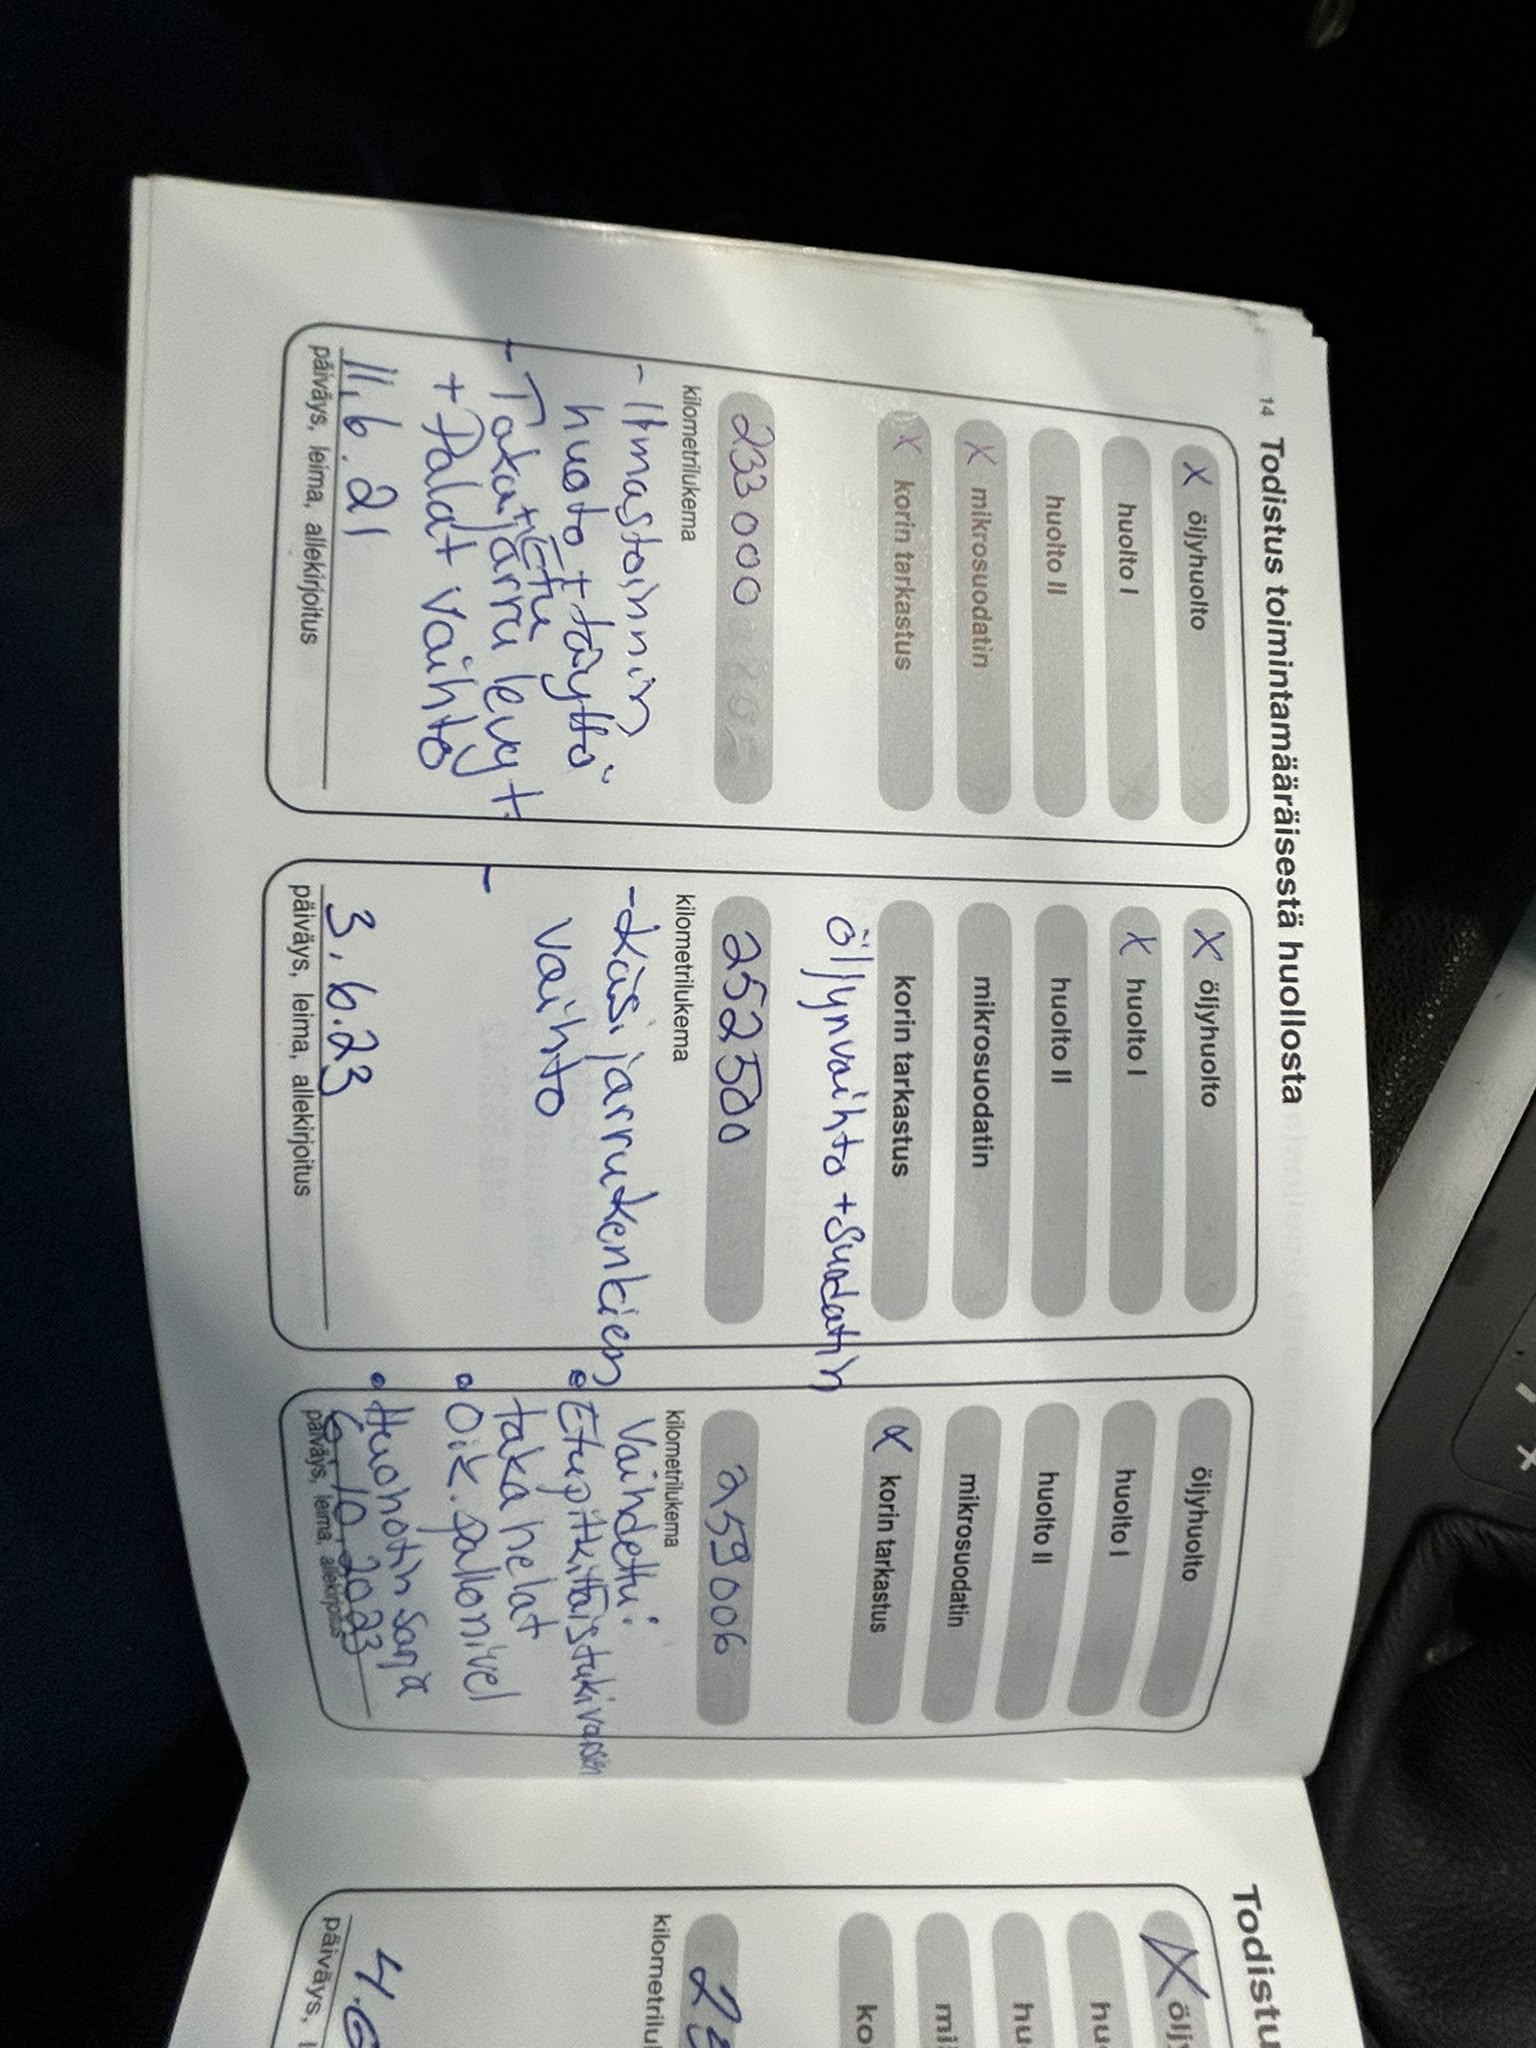 14 Todistus toimintamääräisestä huollosta
X öljyhuolto
huolto I
huolto II
X mikrosuodatin
X korin tarkastus
233 000
kilometrilukema
- Ilmastoinnin
huoto + täyttö
+ Etu
- Takajarru levyt
+ Palat vaihto
11.6.21
päiväys, leima, allekirjoitus
X öljyhuolto
X huolto I
huolto II
mikrosuodatin
korin tarkastus
öljynvaihto + Suodatin
252 500
kilometrilukema
- Käsijarrukenkien
vaihto
-
3.6.23
päiväys, leima, allekirjoitus
öljyhuolto
huolto I
huolto II
mikrosuodatin
X korin tarkastus
259 006
kilometrilukema
Vaihdettu:
• Etupitkittäistukivarsien
taka helat
• Oik. pallonivel
• Huohotin sarja
6.10.2023
päiväys, leima, allekirjoitus
Todistu
X öljy
hu
hu
mi
ko
kilometrilu
4.6
päiväys, l